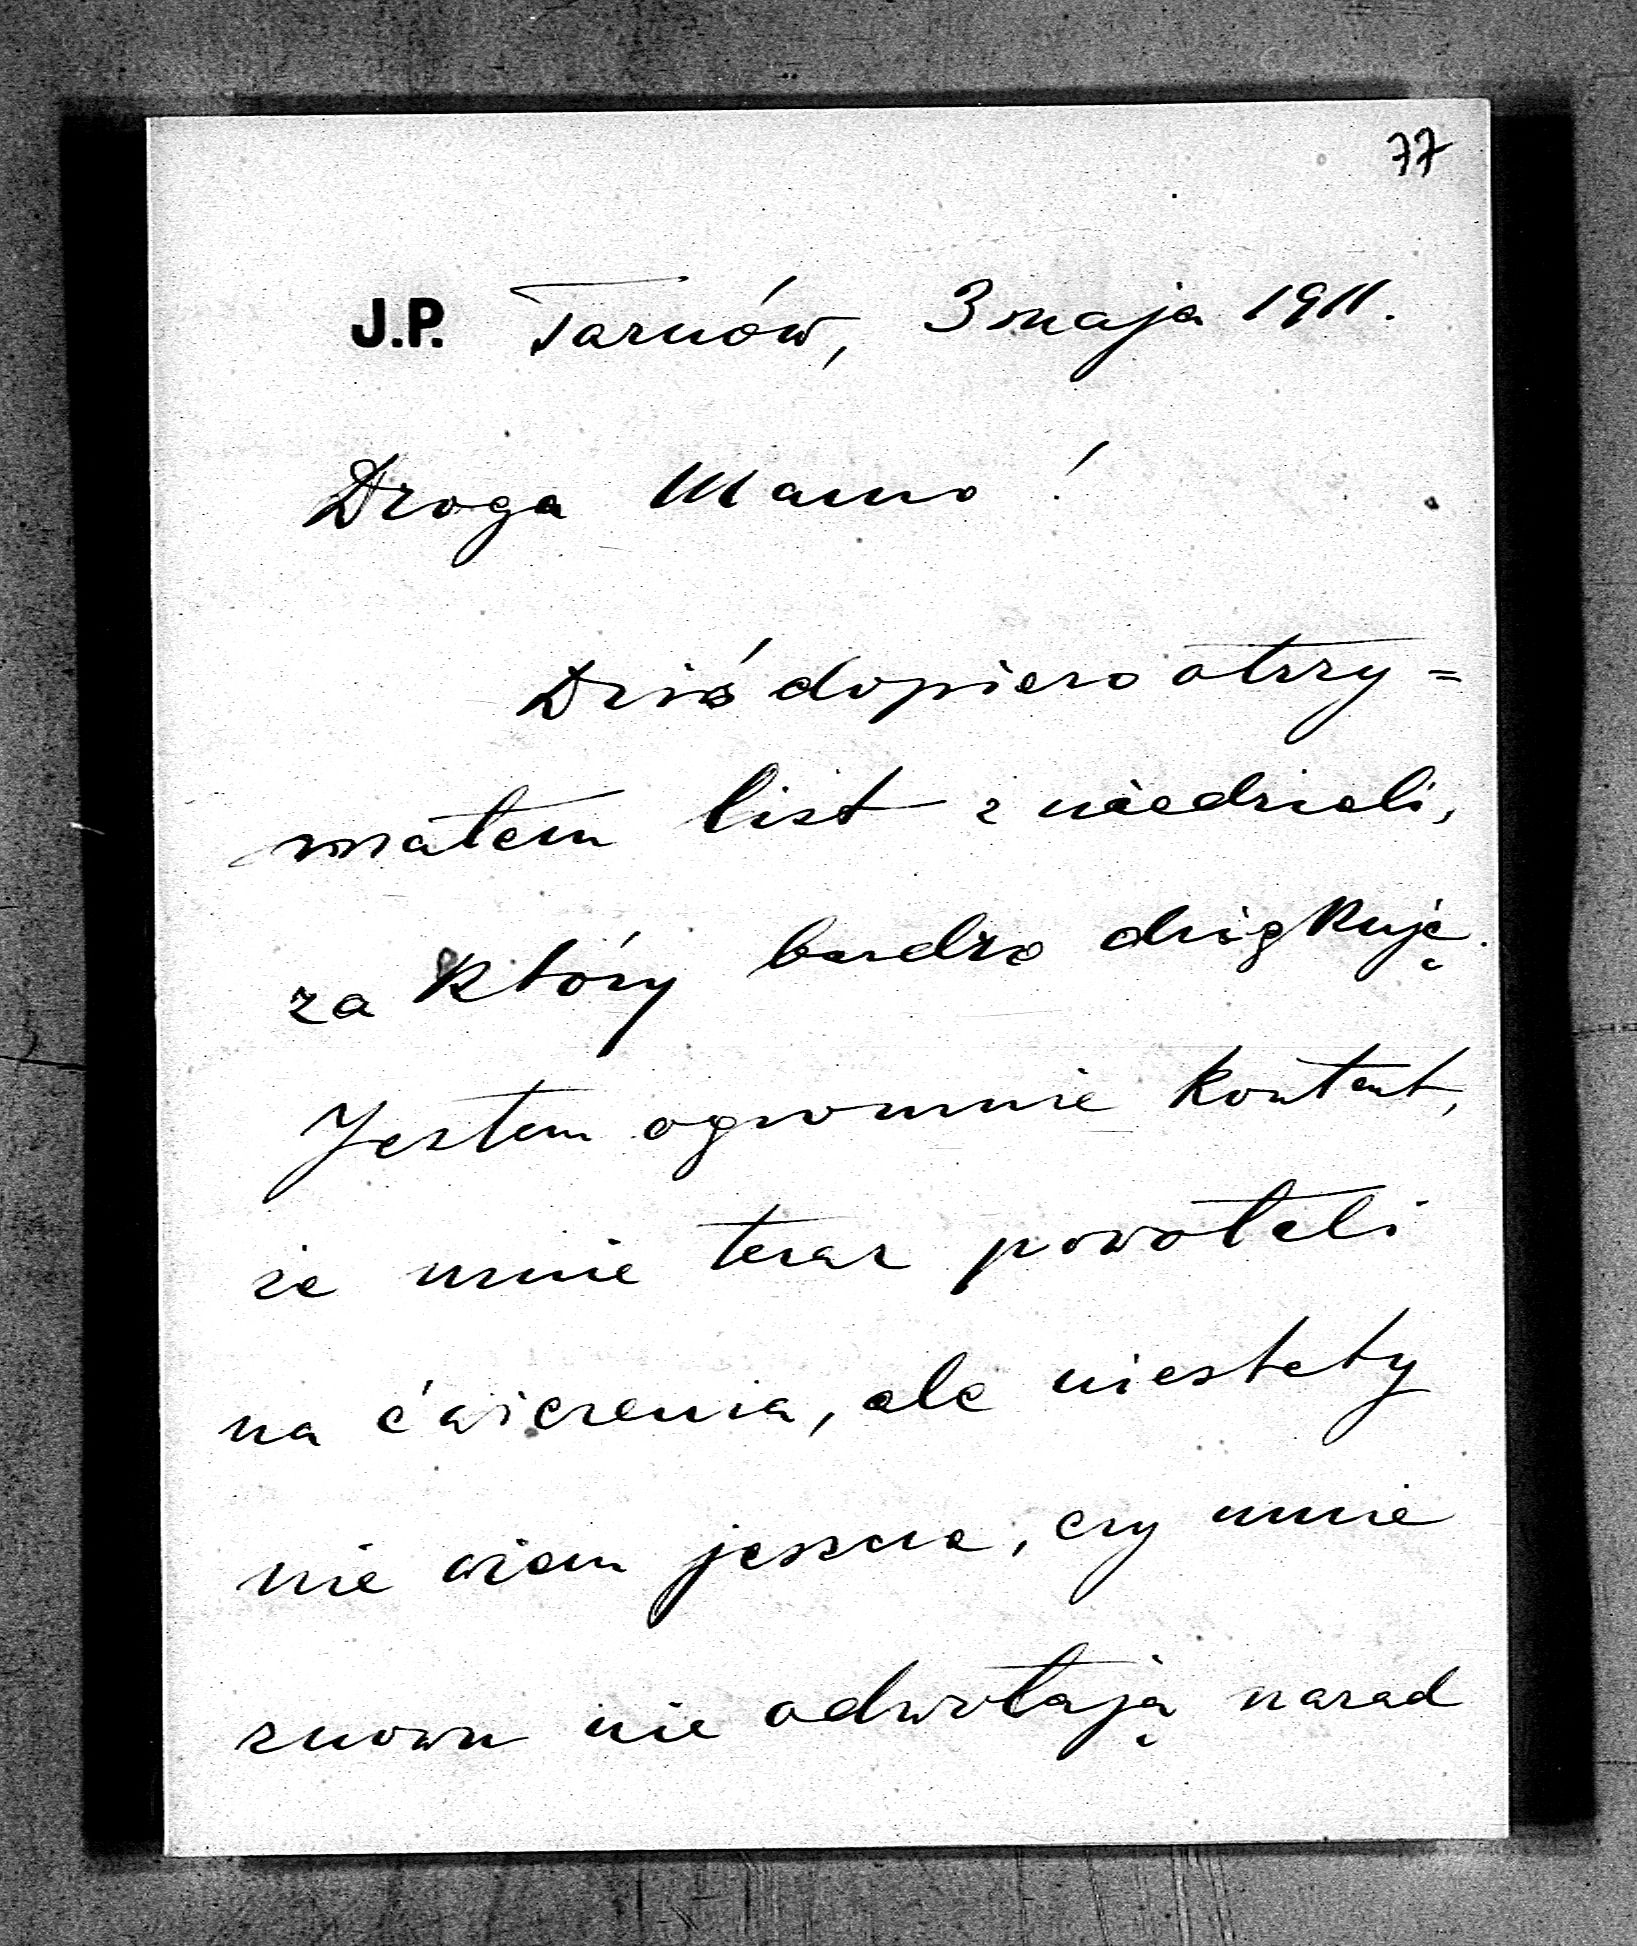 77
J.P. Tarnów, 3 maja 1911.
Droga Mamo!
Dziś dopiero otrzy=
małem list z niedzieli,
za który bardzo dziękuję.
Jestem ogromnie kontent,
że mnie teraz powołali
na ćwiczenia, ale niestety
nie wiem jeszcze, czy mnie
znowu nie odwołają narad